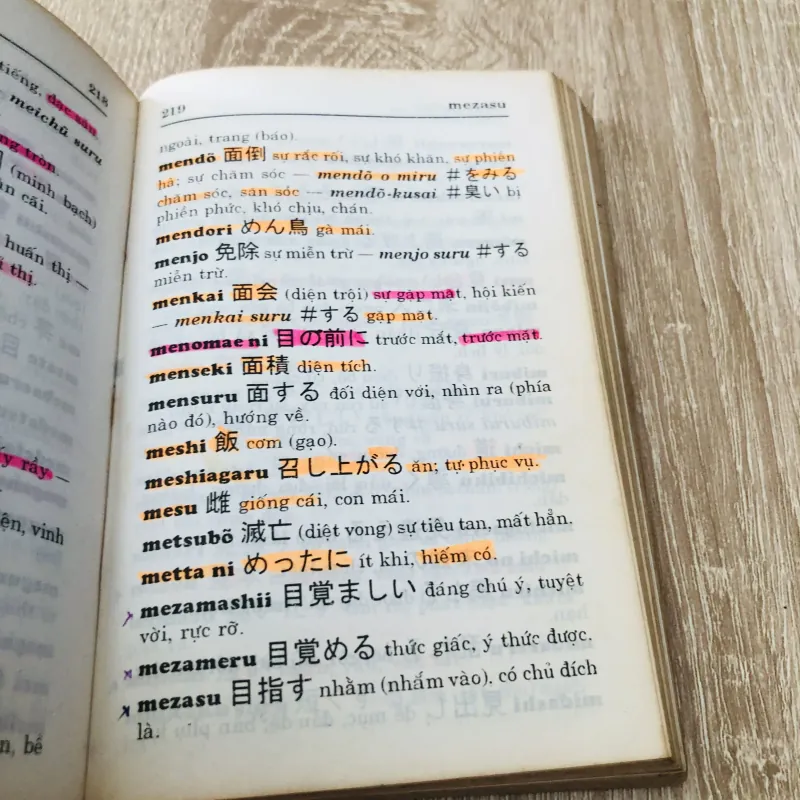 218
tiếng, đặc sản
meichū suru
ng tròn.
(minh bạch)
n cãi.
huấn thị —
thị.
ấy rầy —
ện, vinh
n, bê
219 mezasu
ngoài, trang (báo).
mendō 面倒 sự rắc rối, sự khó khăn, sự phiền
hà; sự chăm sóc — mendō o miru #をみる
chăm sóc, săn sóc — mendō-kusai #臭い bị
phiền phức, khó chịu, chán.
mendori めん鳥 gà mái.
menjo 免除 sự miễn trừ — menjo suru #する
miễn trừ.
menkai 面会 (diện trội) sự gặp mặt, hội kiến
— menkai suru #する gặp mặt.
menomae ni 目の前に trước mắt, trước mặt.
menseki 面積 diện tích.
mensuru 面する đối diện với, nhìn ra (phía
nào đó), hướng về.
meshi 飯 cơm (gạo).
meshiagaru 召し上がる ăn; tự phục vụ.
mesu 雌 giống cái, con mái.
metsubō 滅亡 (diệt vong) sự tiêu tan, mất hẳn.
metta ni めったに ít khi, hiếm có.
mezamashii 目覚ましい đáng chú ý, tuyệt
vời, rực rỡ.
mezameru 目覚める thức giấc, ý thức được.
mezasu 目指す nhằm (nhắm vào). có chủ đích
là.